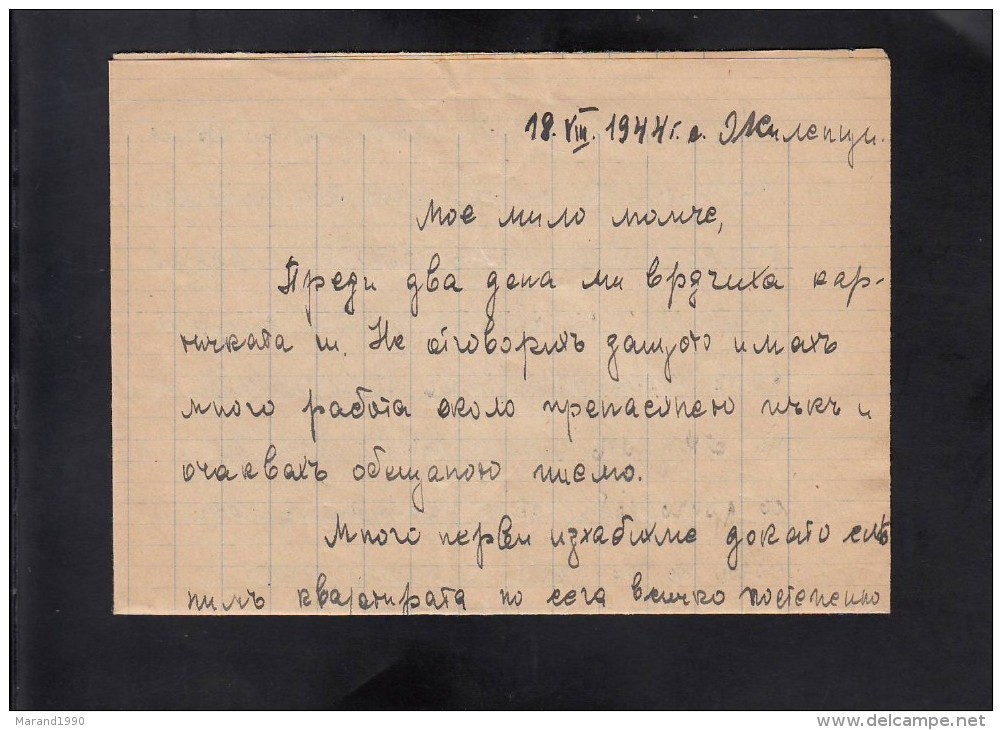 18. VIII. 1944 г. с. Жилепци.
Мое мило момче,
Преди два дена ми врдчиха кар-
тичката ти. Не отговорихъ защото имахъ
много работа около пренасянето пъкъ и
очаквахъ обещаното писмо.
Много нерви изхабихме докато
нимъ квартирата но сега всичко постепенно
Marand1990
delcampe.net